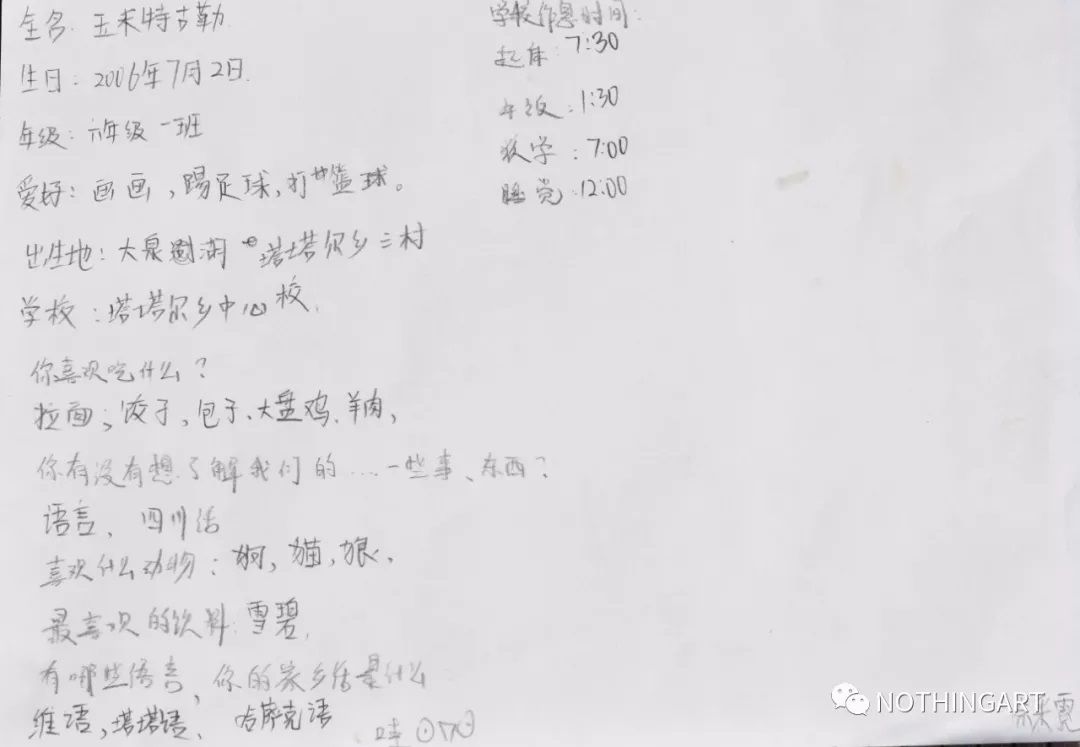 全名: 玉米特古勒
生日: 2006年7月2日.
年级: 六年级一班
爱好: 画画, 踢足球, 打篮球。
出生地: 大泉 塔塔尔乡三村
学校: 塔塔尔乡中心校.
你喜欢吃什么?
拉面, 饺子, 包子、大盘鸡、羊肉,
你有没有想了解我们的....一些事、东西?
语言、四川话
喜欢什么动物: 狗, 猫, 狼、
最喜欢的饮料: 雪碧,
有哪些语言、你的家乡话是什么
维语, 塔塔语、哈萨克语
学校作息时间:
起床: 7:30
午饭: 1:30
放学: 7:00
睡觉: 12:00
NOTHINGART